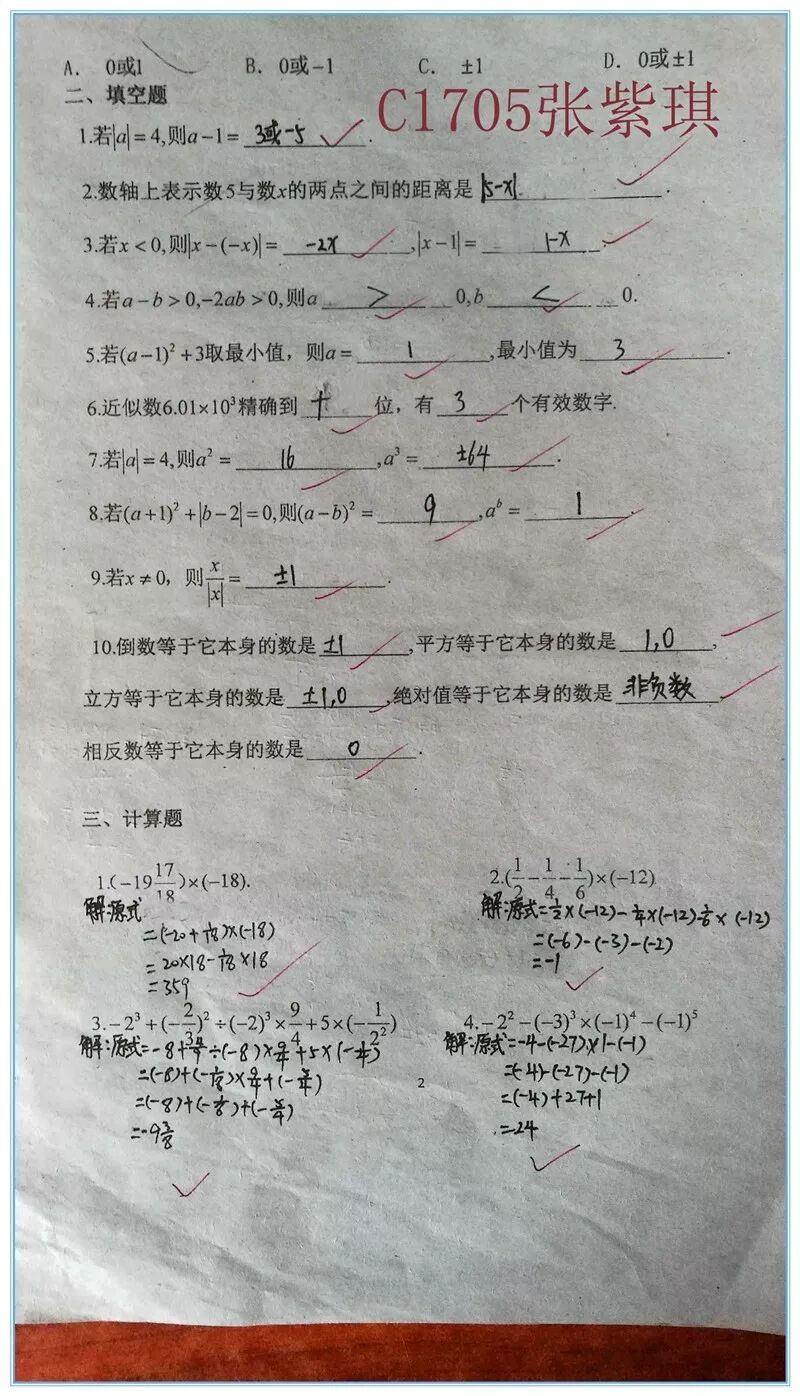 A. 0或1 B. 0或-1 C. ±1 D. 0或±1
二、填空题
C1705张紫琪
1.若|a|=4,则a-1= 3或-5 .
2.数轴上表示数5与数x的两点之间的距离是 |5-x| .
3.若x<0,则|x-(-x)|= -2x ,|x-1|= 1-x .
4.若a-b>0,-2ab>0,则a > 0,b < 0.
5.若(a-1)²+3取最小值，则a= 1 ,最小值为 3 .
6.近似数6.01×10³精确到 十 位，有 3 个有效数字.
7.若|a|=4,则a²= 16 ,a³= ±64 .
8.若(a+1)²+|b-2|=0,则(a-b)²= 9 ,aᵇ= 1 .
9.若x≠0，则x/|x|= ±1 .
10.倒数等于它本身的数是 ±1 ,平方等于它本身的数是 1,0 ,
立方等于它本身的数是 ±1,0 ,绝对值等于它本身的数是 非负数 ,
相反数等于它本身的数是 0 .
三、计算题
1.(-19 17/18)×(-18).
解:源式
=(-20+1/18)×(-18)
=20×18-1/18×18
=359
2.(1/2-1/4-1/6)×(-12)
解:源式=1/2×(-12)-1/4×(-12)-1/6×(-12)
=(-6)-(-3)-(-2)
=-1
3.-2³+(-2/3)²÷(-2)³×9/4+5×(-1/2²)
解:源式=-8+4/9÷(-8)×9/4+5×(-1/4)
=(-8)+(-1/18)×9/4+(-5/4)
=(-8)+(-1/8)+(-5/4)
=-9 3/8
4.-2²-(-3)³×(-1)⁴-(-1)⁵
解:源式=-4-(-27)×1-(-1)
=(-4)-(-27)-(-1)
=(-4)+27+1
=24
2